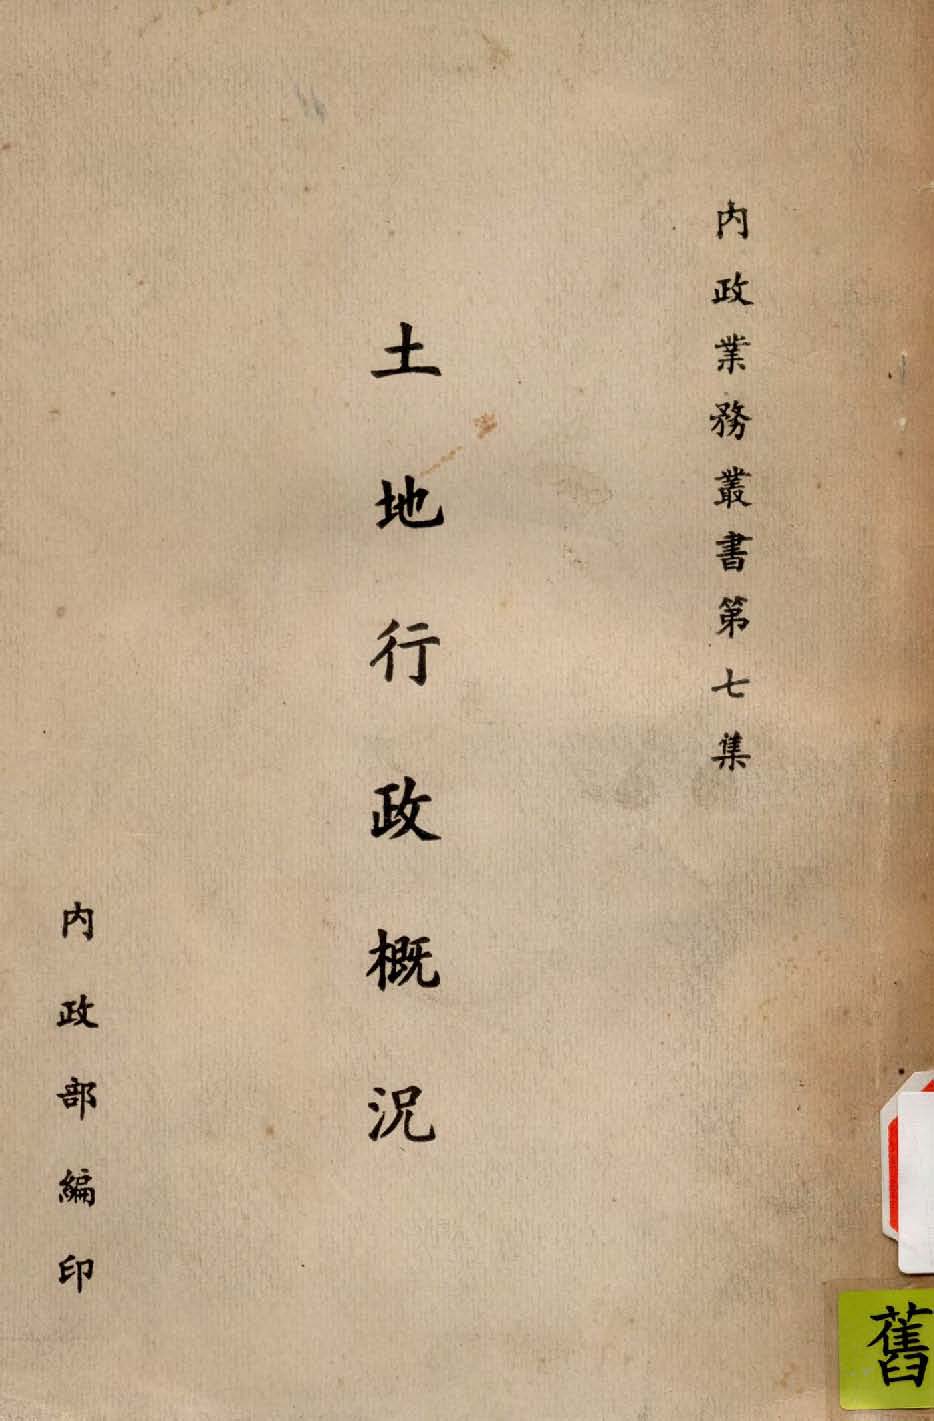 內政業務叢書第七集
土地行政概況
內政部編印
舊